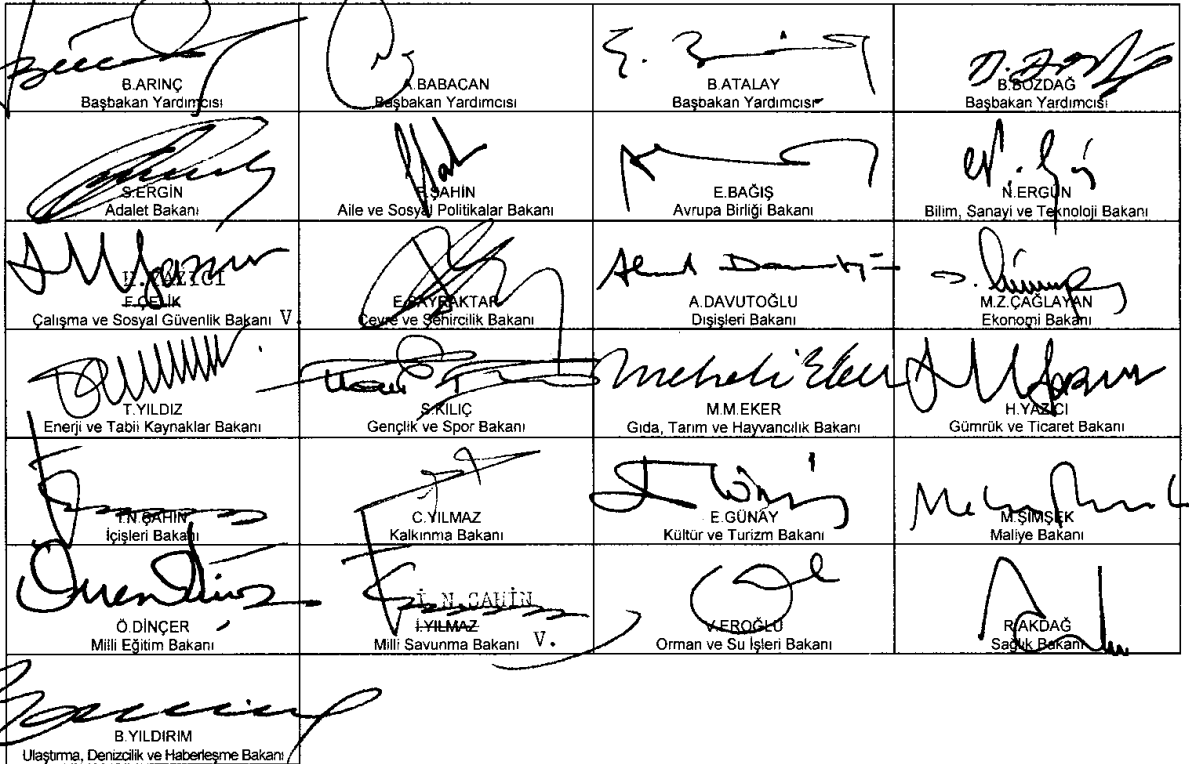 B.ARINÇ
Başbakan Yardımcısı
A.BABACAN
Başbakan Yardımcısı
B.ATALAY
Başbakan Yardımcısı
B.BOZDAĞ
Başbakan Yardımcısı
S.ERGİN
Adalet Bakanı
F.ŞAHİN
Aile ve Sosyal Politikalar Bakanı
E.BAĞIŞ
Avrupa Birliği Bakanı
N.ERGÜN
Bilim, Sanayi ve Teknoloji Bakanı
H.YAZICI
F.ÇELİK
Çalışma ve Sosyal Güvenlik Bakanı V.
E.BAYRAKTAR
Çevre ve Şehircilik Bakanı
A.DAVUTOĞLU
Dışişleri Bakanı
M.Z.ÇAĞLAYAN
Ekonomi Bakanı
T.YILDIZ
Enerji ve Tabii Kaynaklar Bakanı
S.KILIÇ
Gençlik ve Spor Bakanı
M.M.EKER
Gıda, Tarım ve Hayvancılık Bakanı
H.YAZICI
Gümrük ve Ticaret Bakanı
İ.N.ŞAHİN
İçişleri Bakanı
C.YILMAZ
Kalkınma Bakanı
E.GÜNAY
Kültür ve Turizm Bakanı
M.ŞİMŞEK
Maliye Bakanı
Ö.DİNÇER
Milli Eğitim Bakanı
İ.N.ŞAHİN
İ.YILMAZ
Milli Savunma Bakanı V.
V.EROĞLU
Orman ve Su İşleri Bakanı
R.AKDAĞ
Sağlık Bakanı
B.YILDIRIM
Ulaştırma, Denizcilik ve Haberleşme Bakanı